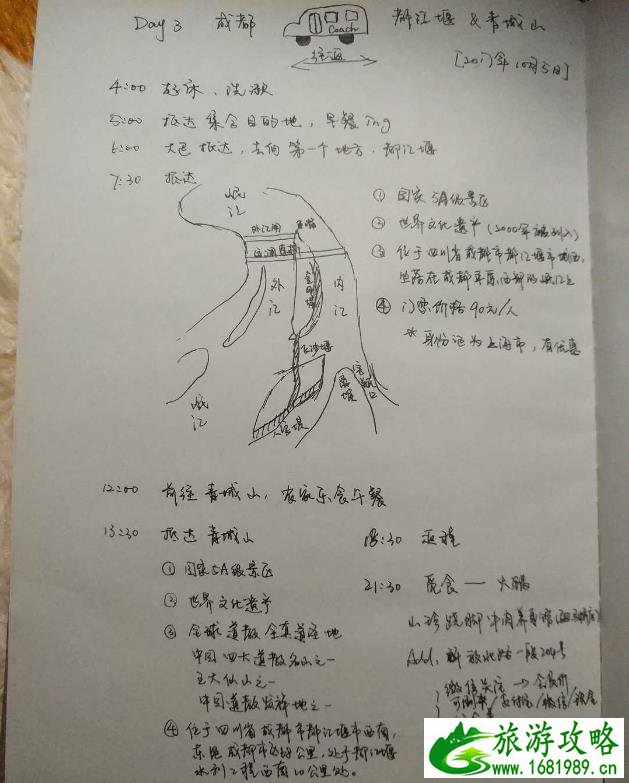 Day 3 成都
Coach
往返
都江堰 & 青城山
[2017年10月5日]
4:00 起床、洗漱
5:00 抵达集合目的地，早餐ing
6:00 大巴抵达，去往第一个地方，都江堰
7:30 抵达
岷江
外江闸
鱼嘴
外江
金刚堤
内江
飞沙堰
宝瓶口
离堆
人字堤
岷江
① 国家5A级景区
② 世界文化遗产 (2000年被列入)
③ 位于四川省成都市都江堰市城西，
坐落在成都平原西部的岷江上
④ 门票价格90元/人
* 身份证为上海市，有优惠
12:00 前往青城山，农家乐食午餐
13:30 抵达青城山
① 国家5A级景区
② 世界文化遗产
③ 全球道教全真道圣地
中国四大道教名山之一
五大仙山之一
中国道教发祥地之一
④ 位于四川省成都市都江堰市西南，
东距成都市区68公里，处于都江堰
水利工程西南10公里处。
18:30 返程
21:30 觅食 — 火锅
山珍跷脚牛肉养身馆
Add. 解放北路一段204号
微信关注 → 会员价
可刷卡/支付宝/微信/现金
旅游攻略
www.1681989.cn